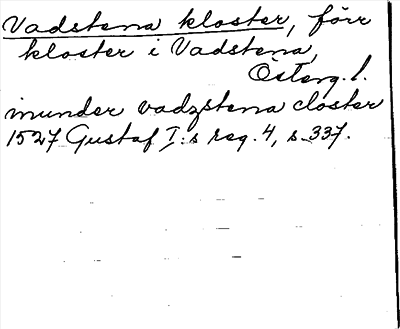 Vadstena kloster, förr
kloster i Vadstena,
Österg. l.
inunder vadzstena closter
1527 Gustaf I:s reg. 4, s. 337.